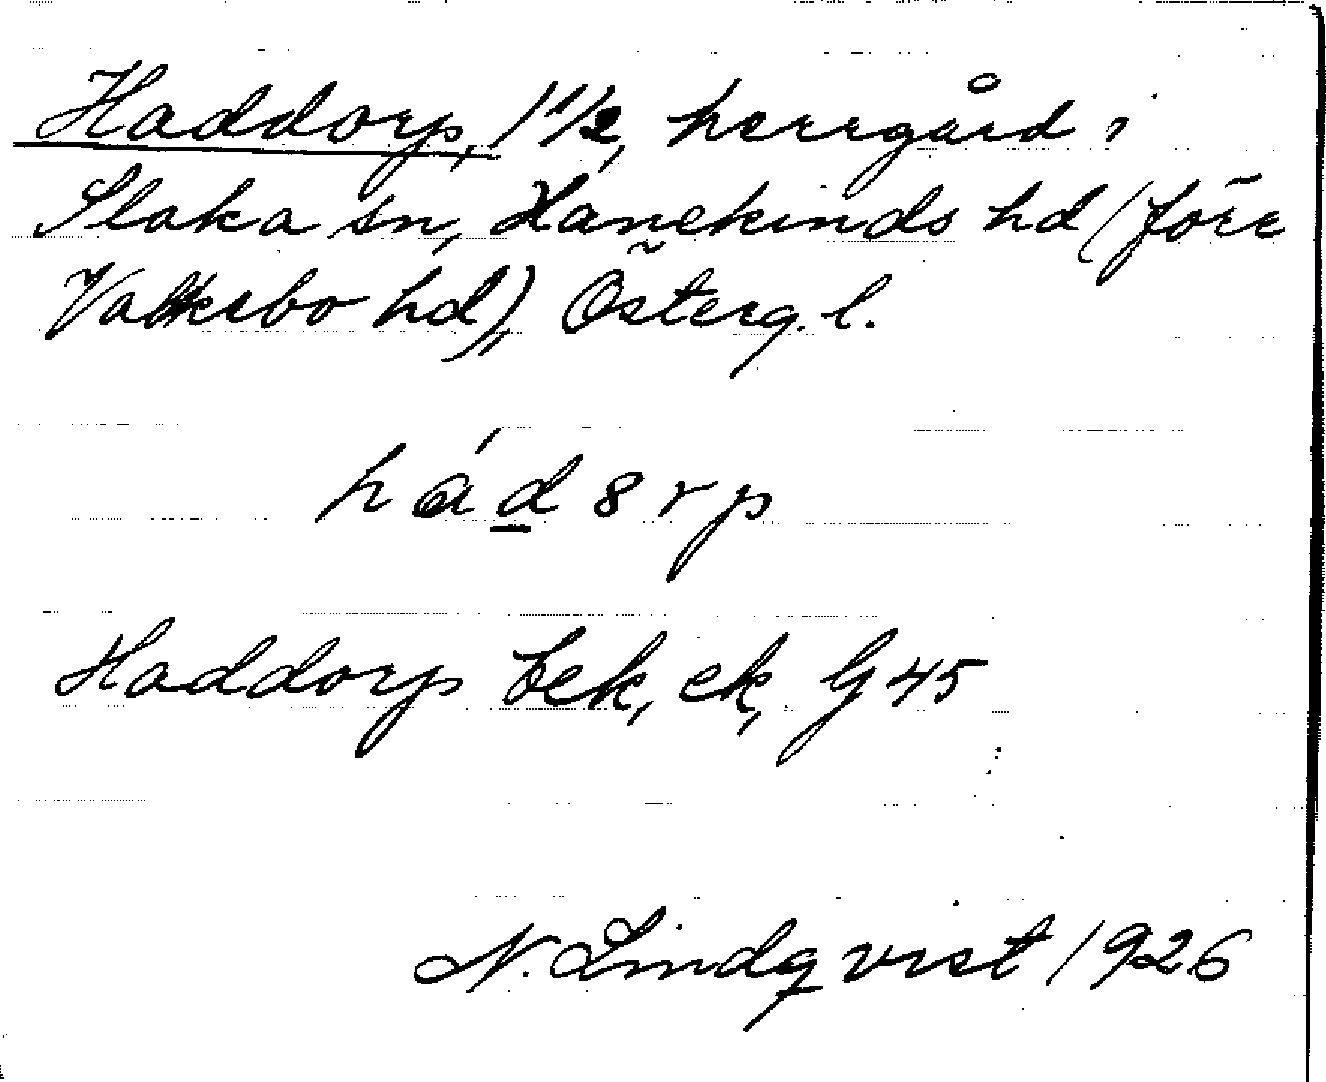 Haddorp, 1 1/2, herrgård i
Slaka sn, Hanekinds hd (före
Valkebo hd), Österg. l.
hád8rp
Haddorp bek, ek, G 45
N. Lindqvist 1926